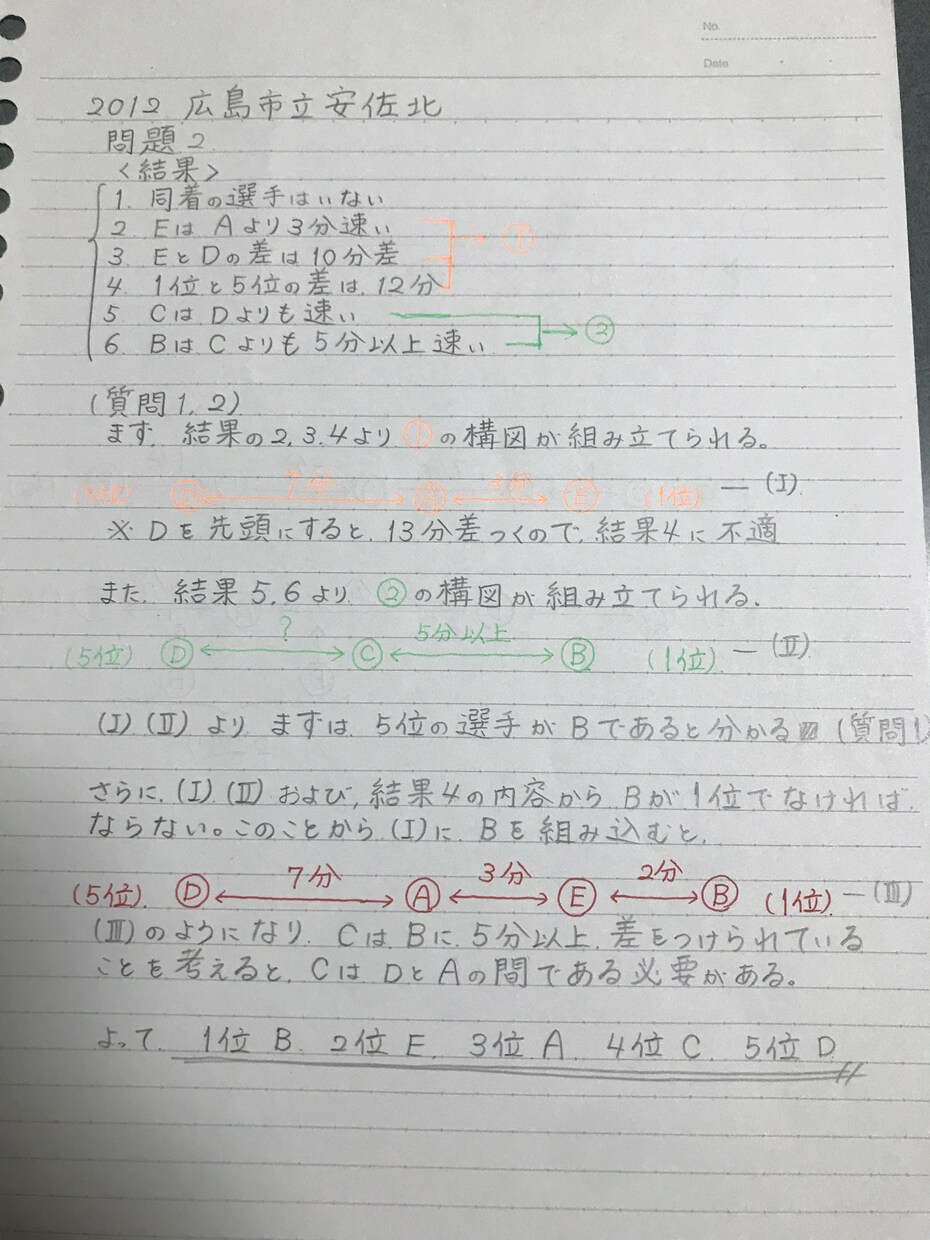 No.
Date
2012 広島市立安佐北
問題2
<結果>
1. 同着の選手はいない
2 EはAより3分速い
3. EとDの差は10分差 → ①
4. 1位と5位の差は、12分
5. CはDよりも速い
6. BはCよりも5分以上速い → ②
(質問1, 2)
まず、結果の2, 3, 4より①の構図が組み立てられる。
(5位) Ⓓ ← 7分 → Ⓐ ← 3分 → Ⓔ (1位) ― (Ⅰ)
※ Dを先頭にすると、13分差つくので、結果4に不適
また、結果5, 6より、②の構図が組み立てられる.
(5位) Ⓓ ← ? → Ⓒ ← 5分以上 → Ⓑ (1位) ― (Ⅱ)
(Ⅰ) (Ⅱ) より まずは 5位の選手がBであると分かる (質問1)
さらに、(Ⅰ) (Ⅱ) および、結果4の内容から Bが1位でなければ、
ならない。このことから (Ⅰ)に、Bを組み込むと、
(5位) Ⓓ ← 7分 → Ⓐ ← 3分 → Ⓔ ← 2分 → Ⓑ (1位) ― (Ⅲ)
(Ⅲ)のようになり、CはBに、5分以上、差をつけられている
ことを考えると、CはDとAの間である必要がある。
よって、1位 B. 2位 E. 3位 A. 4位 C. 5位 D